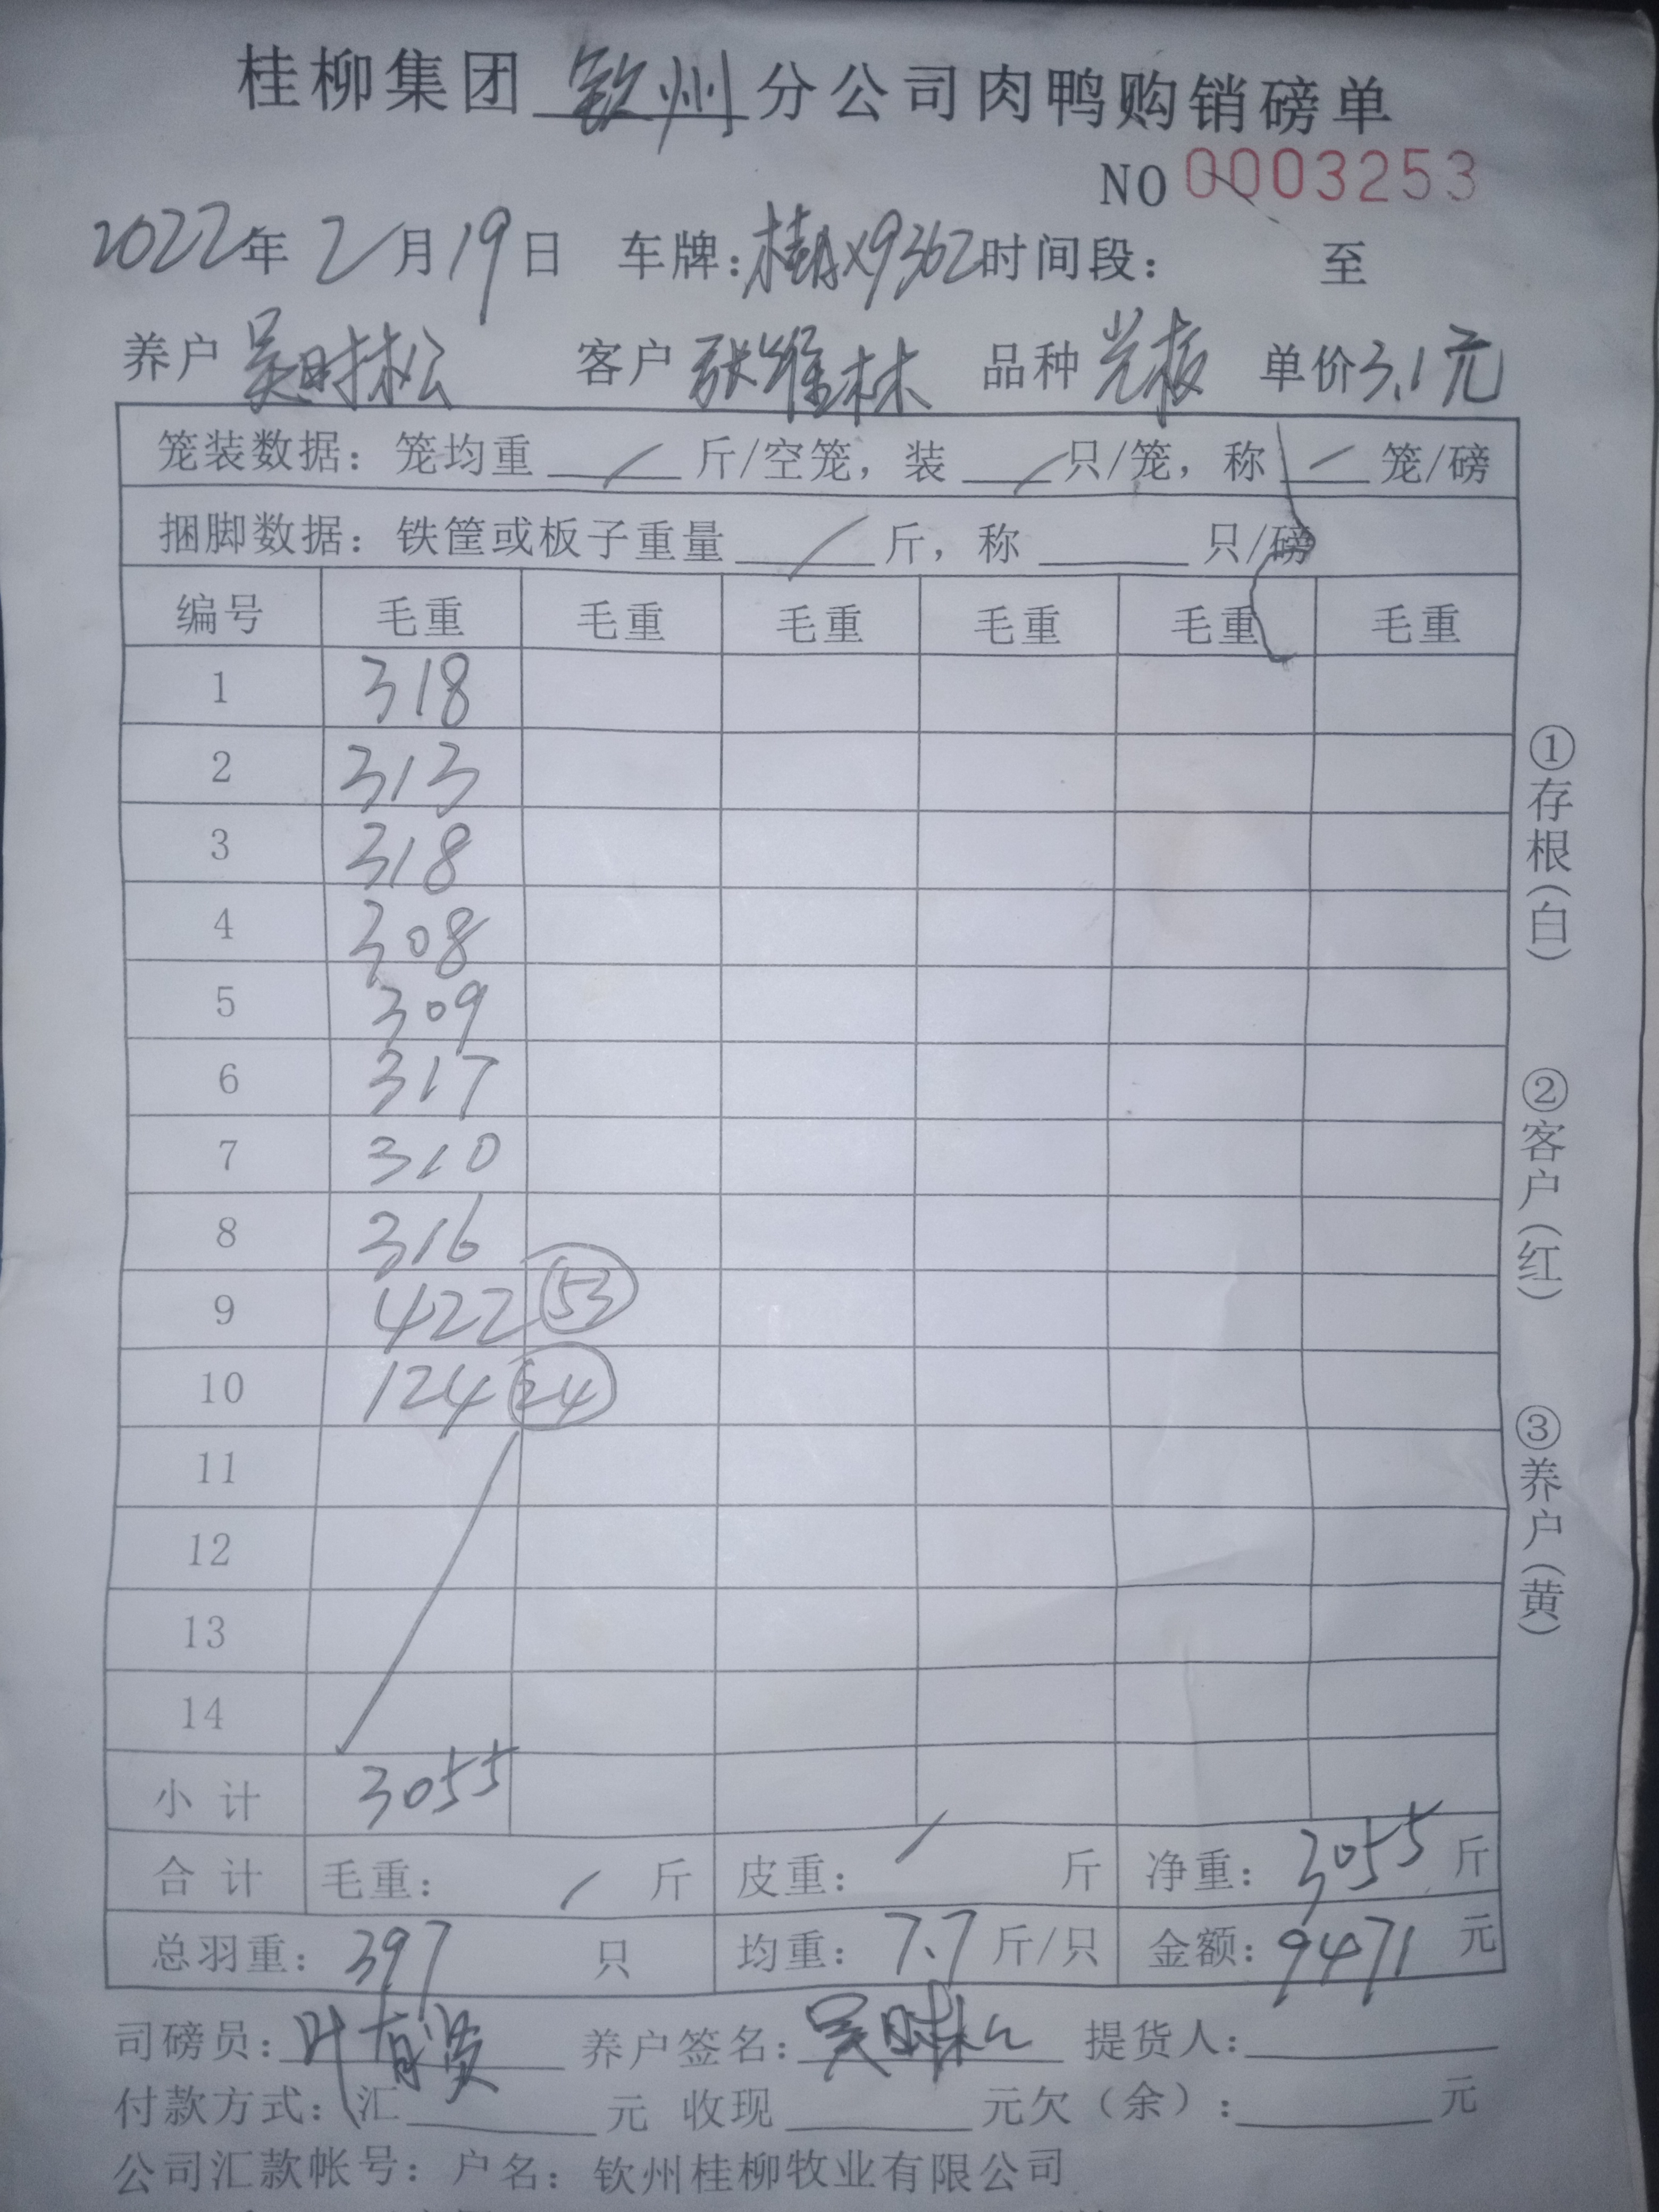 桂柳集团 钦州 分公司肉鸭购销磅单
NO 0003253
2022年 2月 19日 车牌:桂AX9362时间段: 至
养户 吴时松 客户 张维林 品种 光板 单价3.1元
笼装数据: 笼均重 / 斤/空笼, 装 / 只/笼, 称 / 笼/磅
捆脚数据: 铁筐或板子重量 / 斤, 称 只/磅
编号 毛重 毛重 毛重 毛重 毛重 毛重
1 318
2 313
3 318
4 308
5 309
6 317
7 310
8 316
9 422 53
10 124 24
11
12
13
14
小计 3055
合计 毛重: / 斤 皮重: / 斤 净重: 3055 斤
总羽重: 397 只 均重: 7.7 斤/只 金额: 9471 元
司磅员: 叶 养户签名: 吴时松 提货人:
付款方式: 汇 元 收现 元欠(余): 元
公司汇款帐号: 户名: 钦州桂柳牧业有限公司
①存根(白)
②客户(红)
③养户(黄)